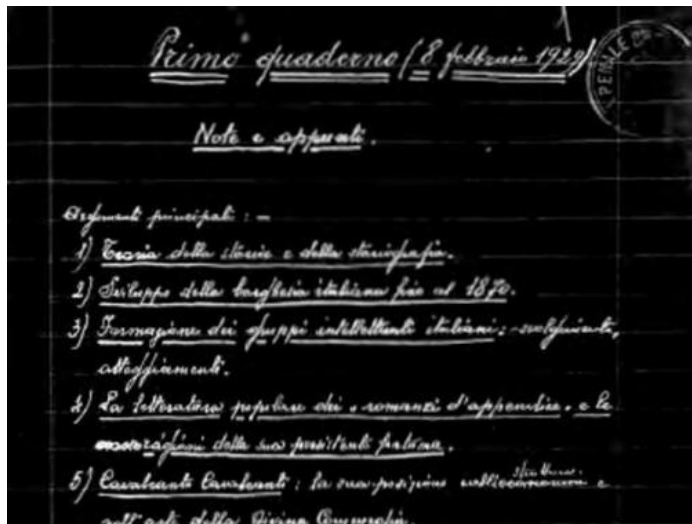 Primo quaderno (8 febbraio 1929)
PENALE
Note e appunti.
Argomenti principali : –
1) Teoria della storia e della storiografia.
2) Sviluppo della borghesia italiana fino al 1870.
3) Formazione dei gruppi intellettuali italiani: – svolgimento,
atteggiamenti.
4) La letteratura popolare dei « romanzi d'appendice » e le
ragioni della sua persistente fortuna.
5) Cavalcante Cavalcanti : la sua posizione nella struttura e
nell'arte della Divina Commedia.